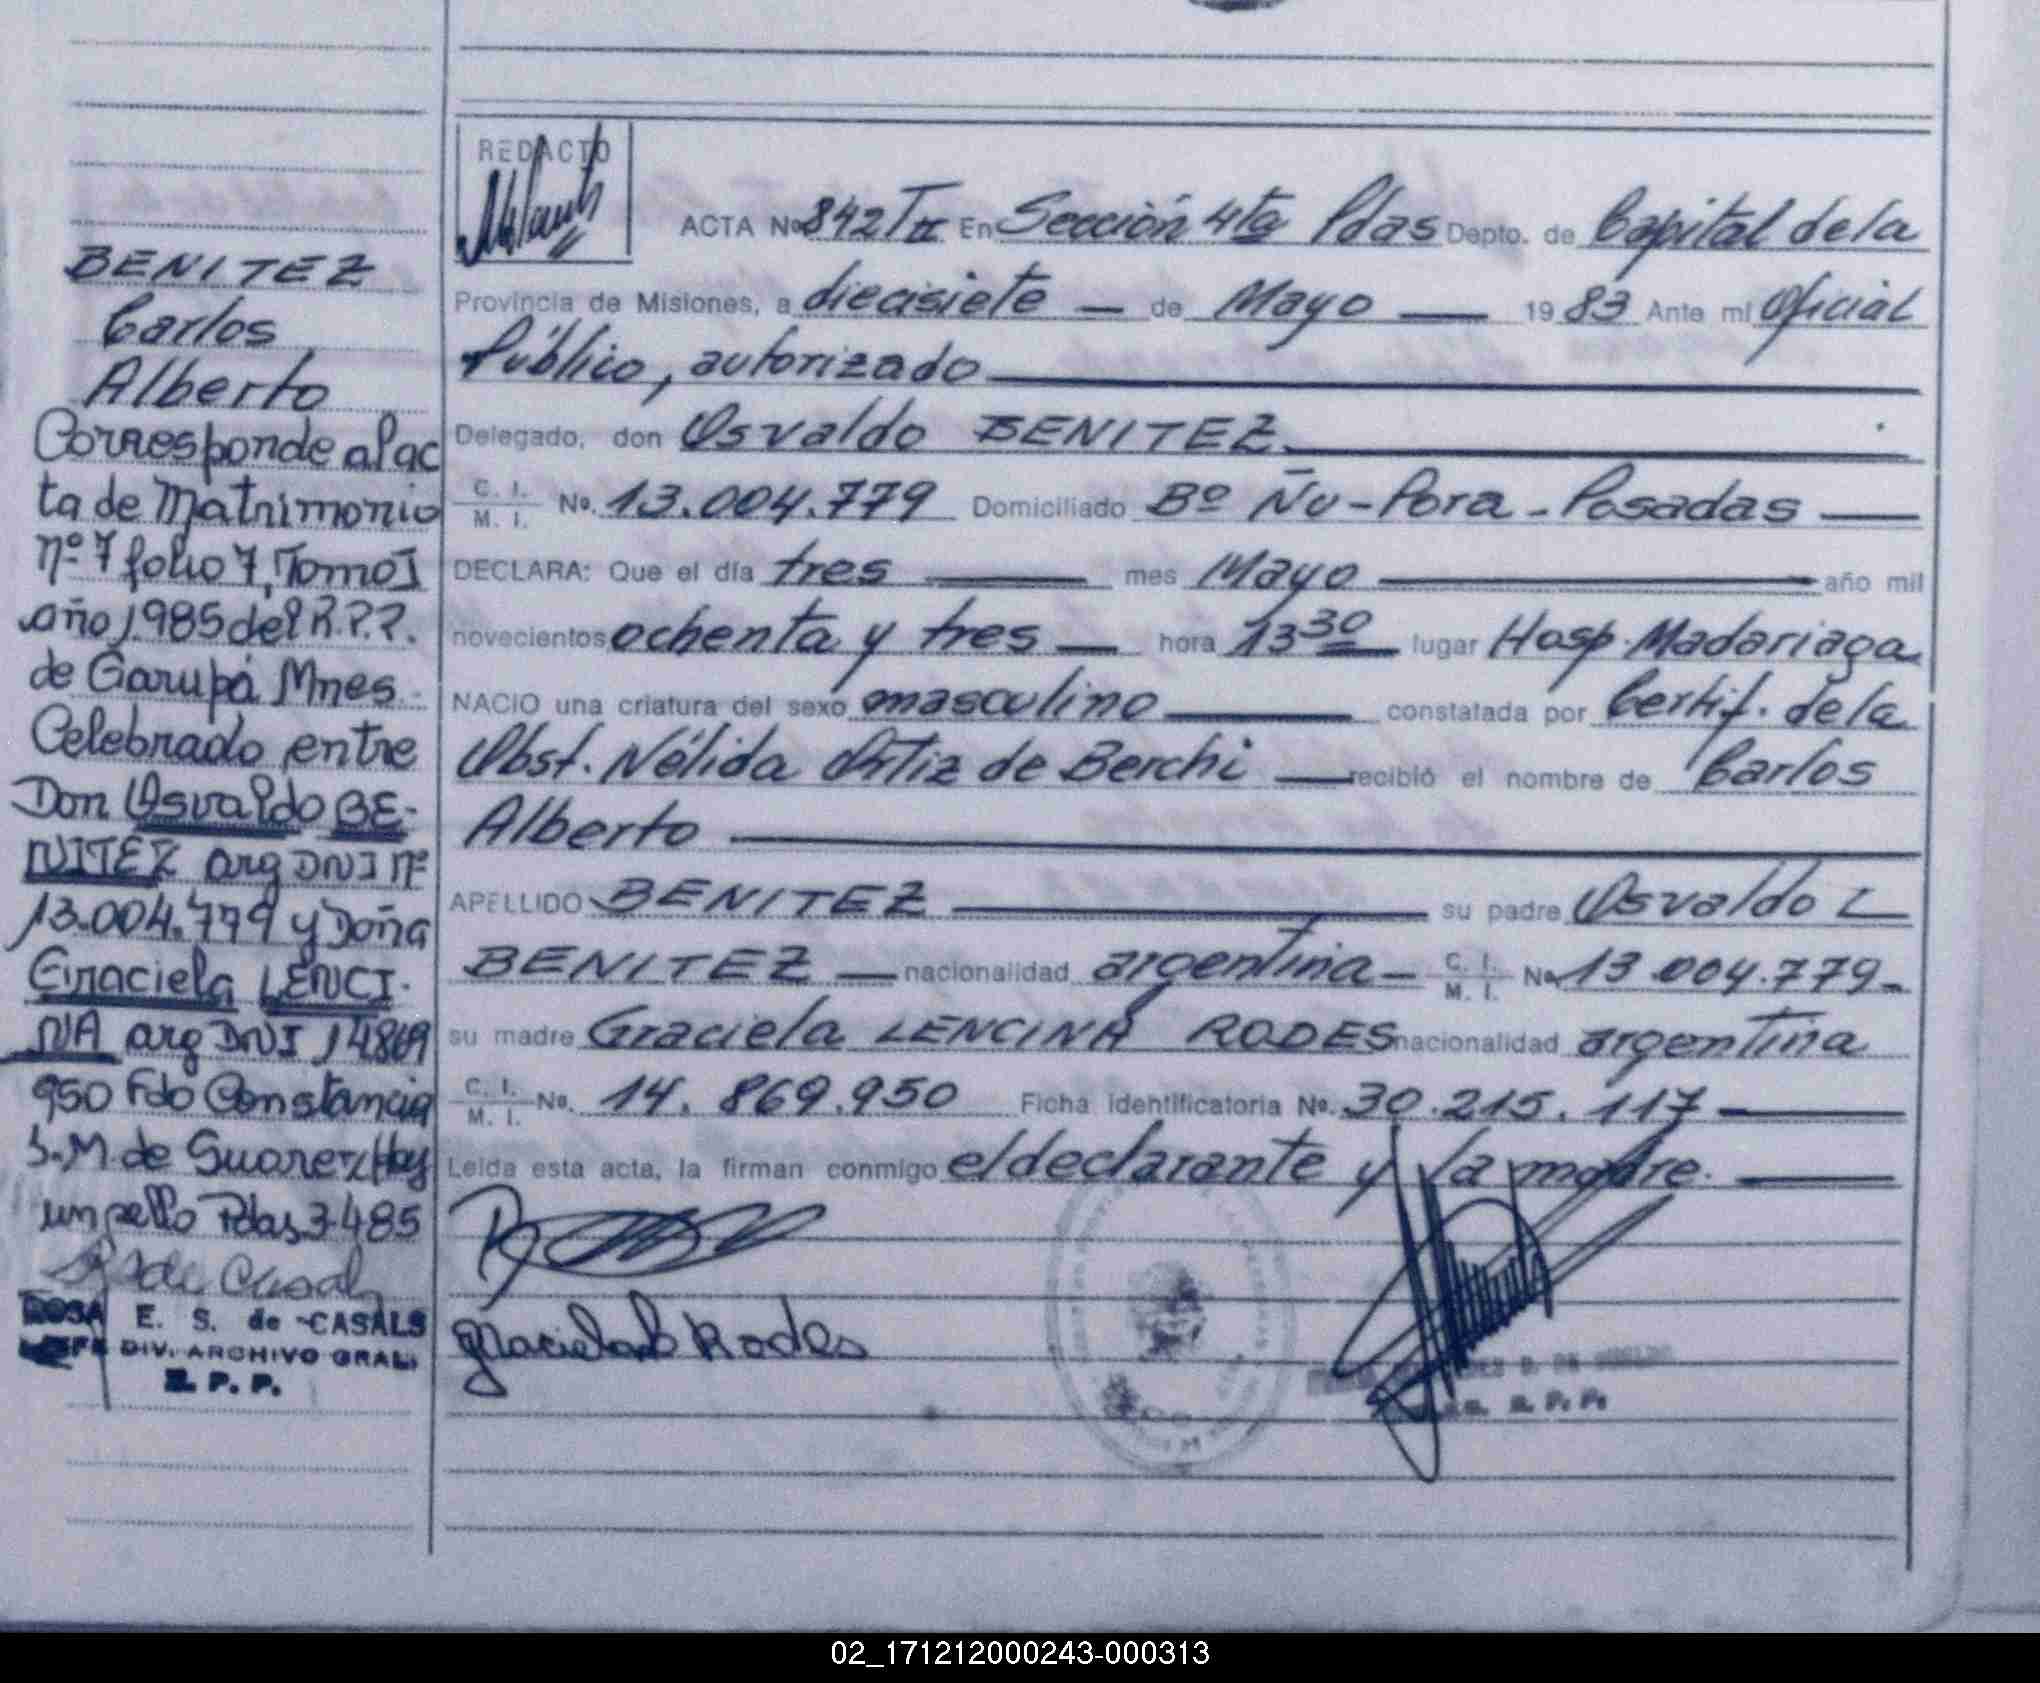 BENITEZ
Carlos
Alberto
Corresponde al ac
ta de Matrimonio
nº 7 folio 7, Tomo I
año 1.985 del R.P.P.
de Garupá Mnes.
Celebrado entre
Don Osvaldo BE-
NITEZ arg DNI nº
13.004.779 y Doña
Graciela LENCI-
NA arg DNI 14869
950 Fdo Constancia
S.M. de Suarez Hay
un sello Pdas 3-4 85
de Casals
ROSA E. S. de CASALS
JEFE DIV. ARCHIVO GRAL.
R. P. P.
REDACTO
ACTA Nº 842 T II En Sección 4ta Pdas Depto. de Capital de la
Provincia de Misiones, a diecisiete — de Mayo — 1983 Ante mí Oficial
Público, autorizado
Delegado, don Osvaldo BENITEZ.
C. I. / M. I. No. 13.004.779 Domiciliado Bº Ñu-Pora - Posadas —
DECLARA: Que el día tres — mes Mayo — año mil
novecientos ochenta y tres — hora 13 30 — lugar Hosp. Madariaga
NACIO una criatura del sexo masculino — constatada por Certif. de la
Obst. Nélida Ortiz de Berchi — recibió el nombre de Carlos
Alberto —
APELLIDO BENITEZ — su padre Osvaldo
BENITEZ — nacionalidad argentina — C. I. / M. I. No 13.004.779-
su madre Graciela LENCINA RODES nacionalidad argentina
C. I. / M. I. No. 14. 869.950 Ficha identificatoria No. 30.215.117 —
Leida esta acta, la firman conmigo el declarante y la madre. —
Rodes
R. P. P.
02_171212000243-000313